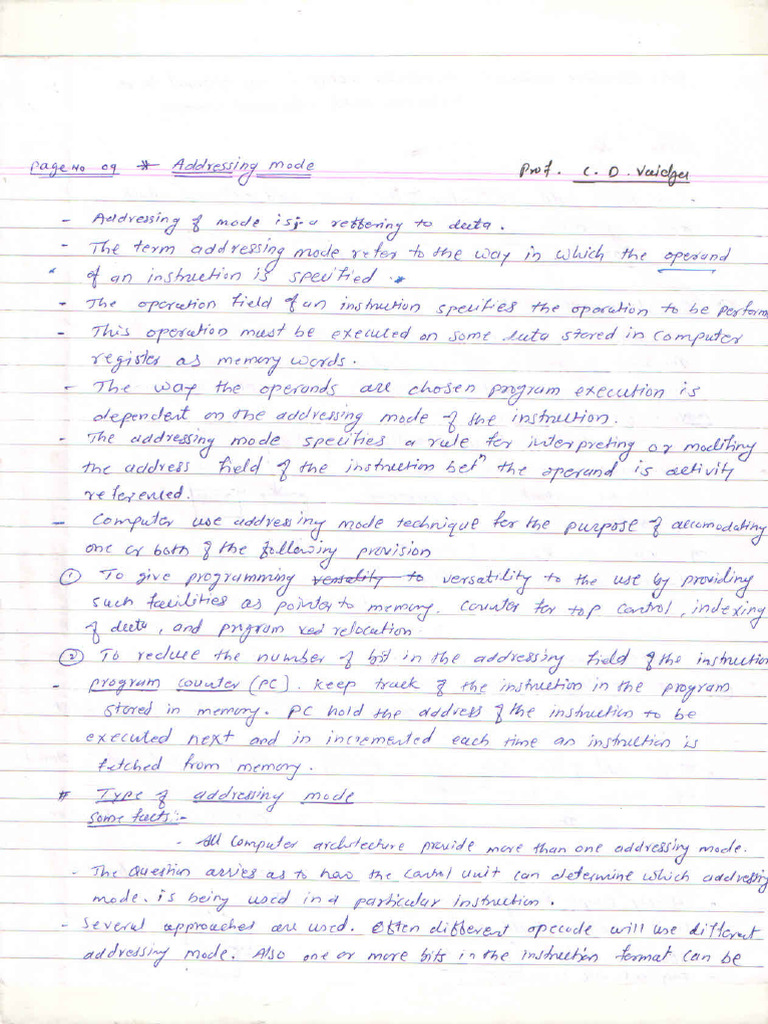 Page No 09 * Addressing mode Prof. C. D. Vaidya
- Addressing of mode is :- a reffering to data.
- The term addressing mode refer to the way in which the operand
of an instruction is specified.
- The operation field of an instruction specifies the operation to be perform
- This operation must be executed on some data stored in computer
register as memory words.
- The way the operands are chosen program execution is
dependent on the addressing mode of the instruction.
- The addressing mode specifies a rule for interpreting or modifing
the address field of the instruction betn the operand is activity
referenced.
- Computer use addressing mode technique for the purpose of accomodating
one or both of the following provision
① To give programming versality to versatility to the use by providing
such facilities as pointer to memory, counter for top control, indexing
of data, and program relocation.
② To reduce the number of bit in the addressing field of the instruction
- program counter (PC). Keep track of the instruction in the program
stored in memory. PC hold the address of the instruction to be
executed next and in incremented each time an instruction is
fetched from memory.
# Type of addressing mode
Some facts:-
- All computer architecture provide more than one addressing mode.
- The Question arries as to how the control unit can determine which addressing
mode. is being used in a particular instruction.
- Several approaches are used. Often different opccode will use different
addressing mode. Also one or more bits in the instruction format can be